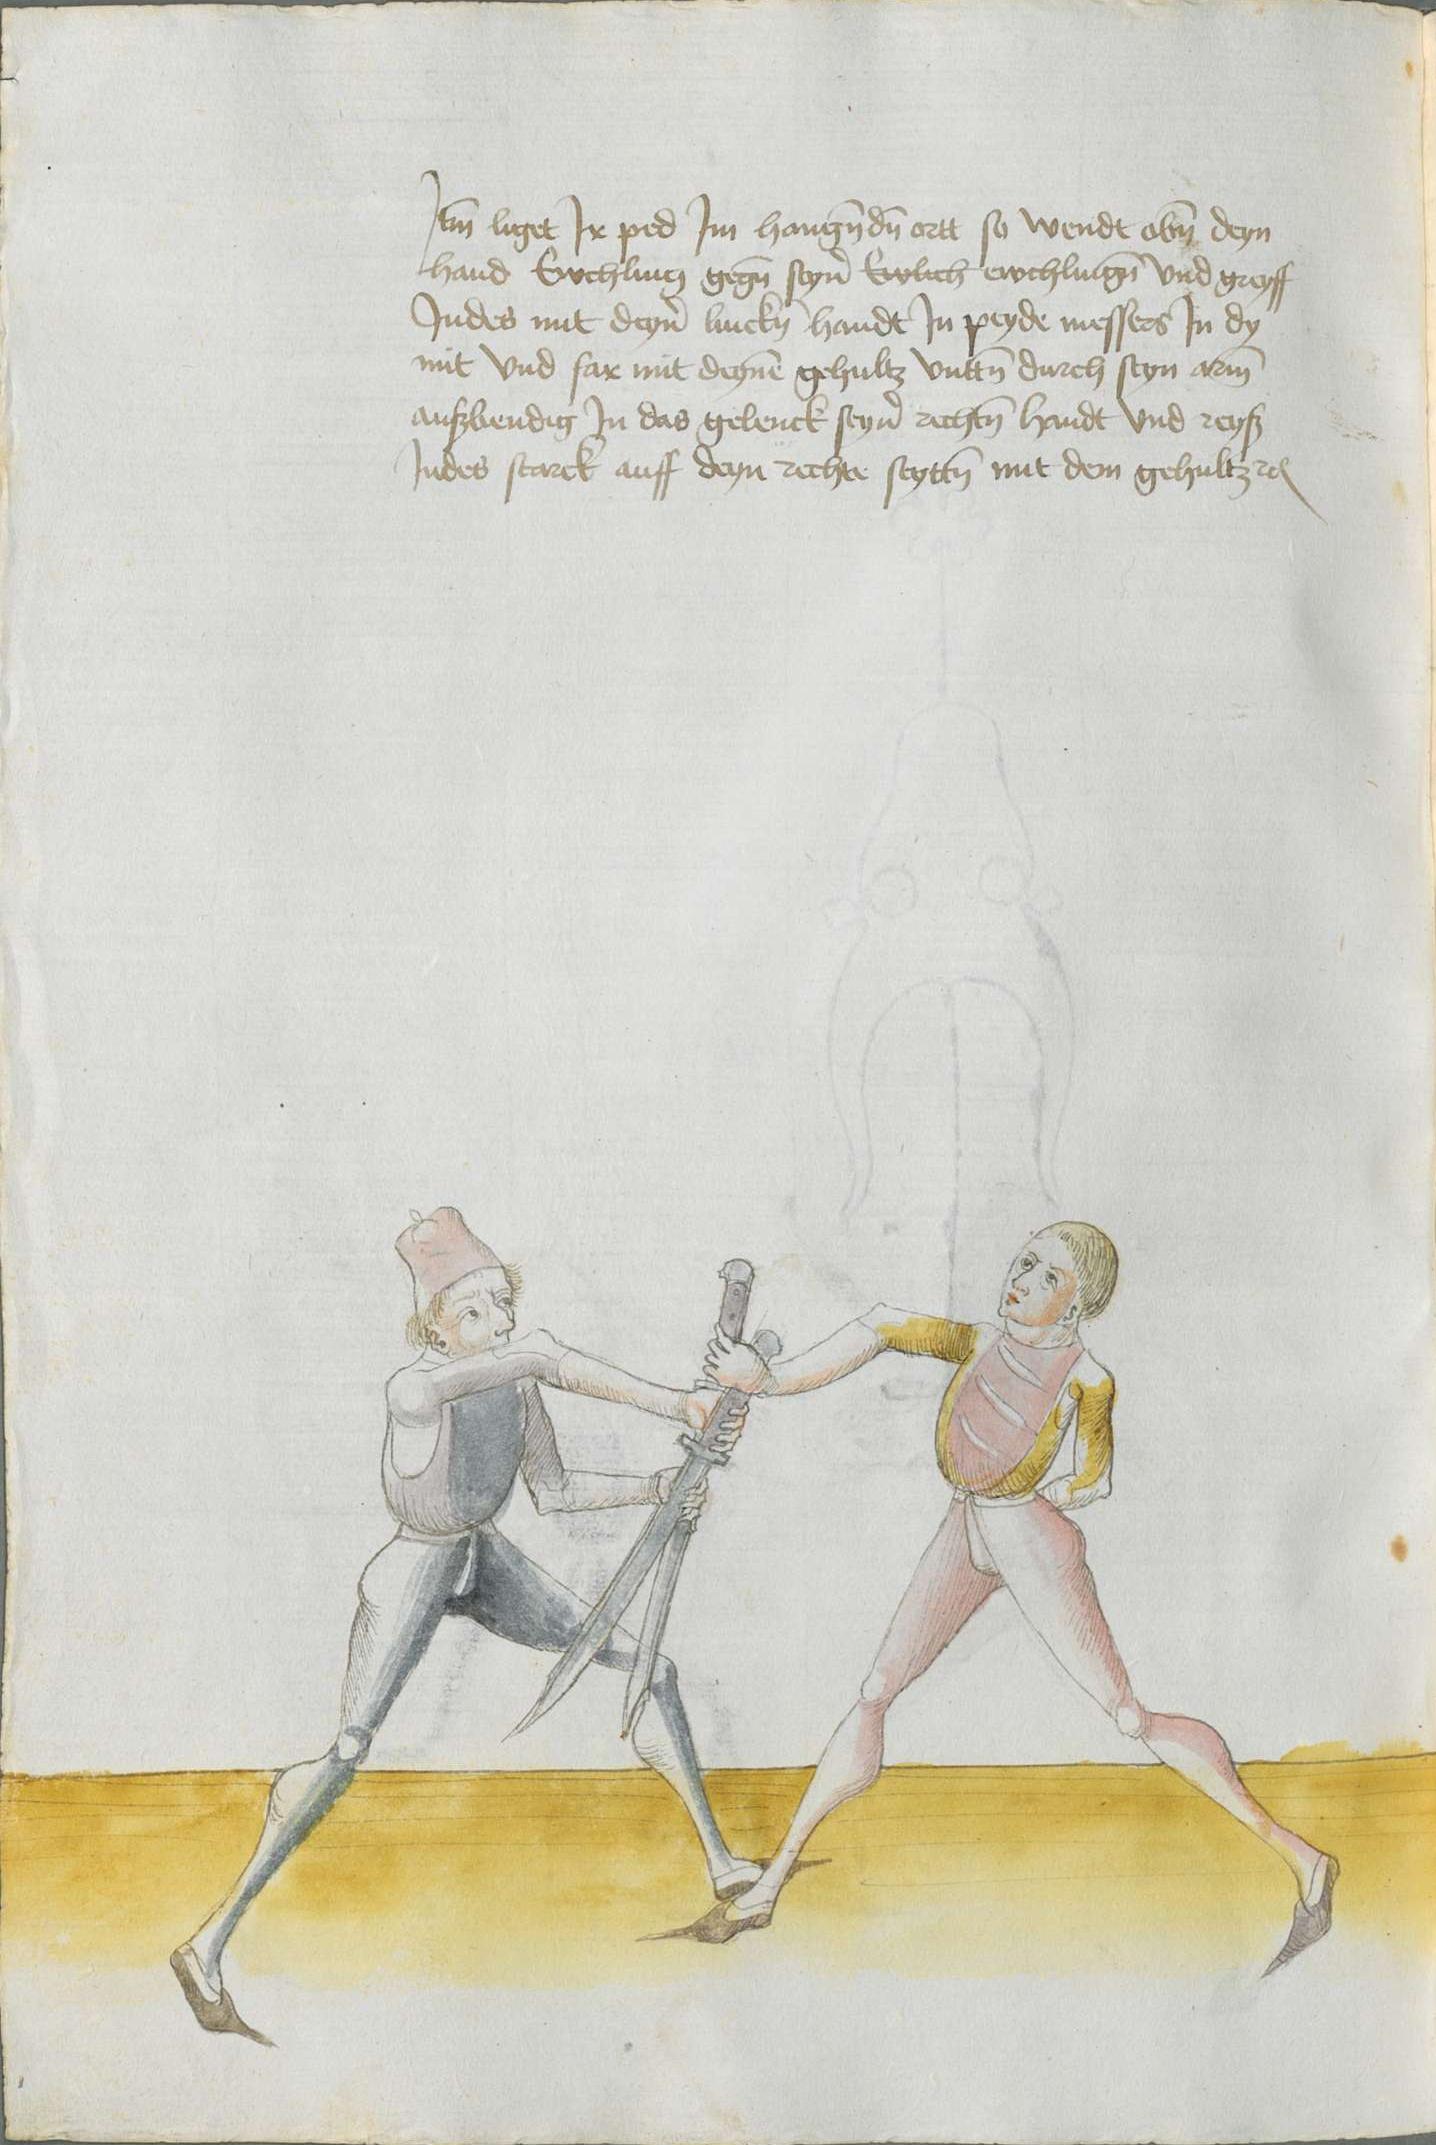 Itm̄ liget Ir ped Im hangn̄dn̄ ortt so wendt obn̄ deyn
hand Ewchling gegn̄ seyn̄ Ewlich ewchlingn̄ vnd greyff
Indes mit deyn̄ linckn̄ handt In peyde messers In dy
mit vnd far mit deynē gehultz vnttn̄ durch seyn arm̄
auszbendig In das gelenck seyn̄ rechtn̄ handt vnd reysz
Indes starck auff deyn rechte seyttn̄ mit dem gehultz rc